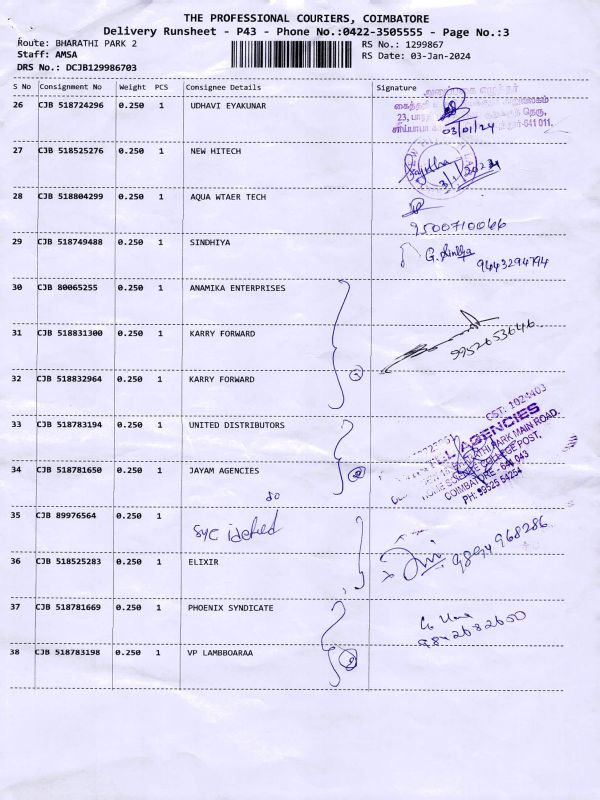 THE PROFESSIONAL COURIERS, COIMBATORE
Delivery Runsheet - P43 - Phone No.:0422-3505555 - Page No.:3
Route: BHARATHI PARK 2 RS No.: 1299867
Staff: AMSA RS Date: 03-Jan-2024
DRS No.: DCJB129986703
S No Consignment No Weight PCS Consignee Details Signature
26 CJB 518724296 0.250 1 UDHAVI EYAKUNAR
03/01/24
27 CJB 518525276 0.250 1 NEW HITECH
28 CJB 518804299 0.250 1 AQUA WTAER TECH
9500710066
29 CJB 518749488 0.250 1 SINDHIYA
9443294794
30 CJB 80065255 0.250 1 ANAMIKA ENTERPRISES
31 CJB 518831300 0.250 1 KARRY FORWARD
9952653646
32 CJB 518832964 0.250 1 KARRY FORWARD
CST. 1024403
33 CJB 518783194 0.250 1 UNITED DISTRIBUTORS
AGENCIES
PARK MAIN ROAD,
HOME SCIENCE COLLEGE POST,
COIMBATORE - 641 043
PH: 99525 54254
34 CJB 518781650 0.250 1 JAYAM AGENCIES
35 CJB 89976564 0.250 1
36 CJB 518525283 0.250 1 ELIXIR
37 CJB 518781669 0.250 1 PHOENIX SYNDICATE
9842682650
38 CJB 518783198 0.250 1 VP LAMBBOARAA